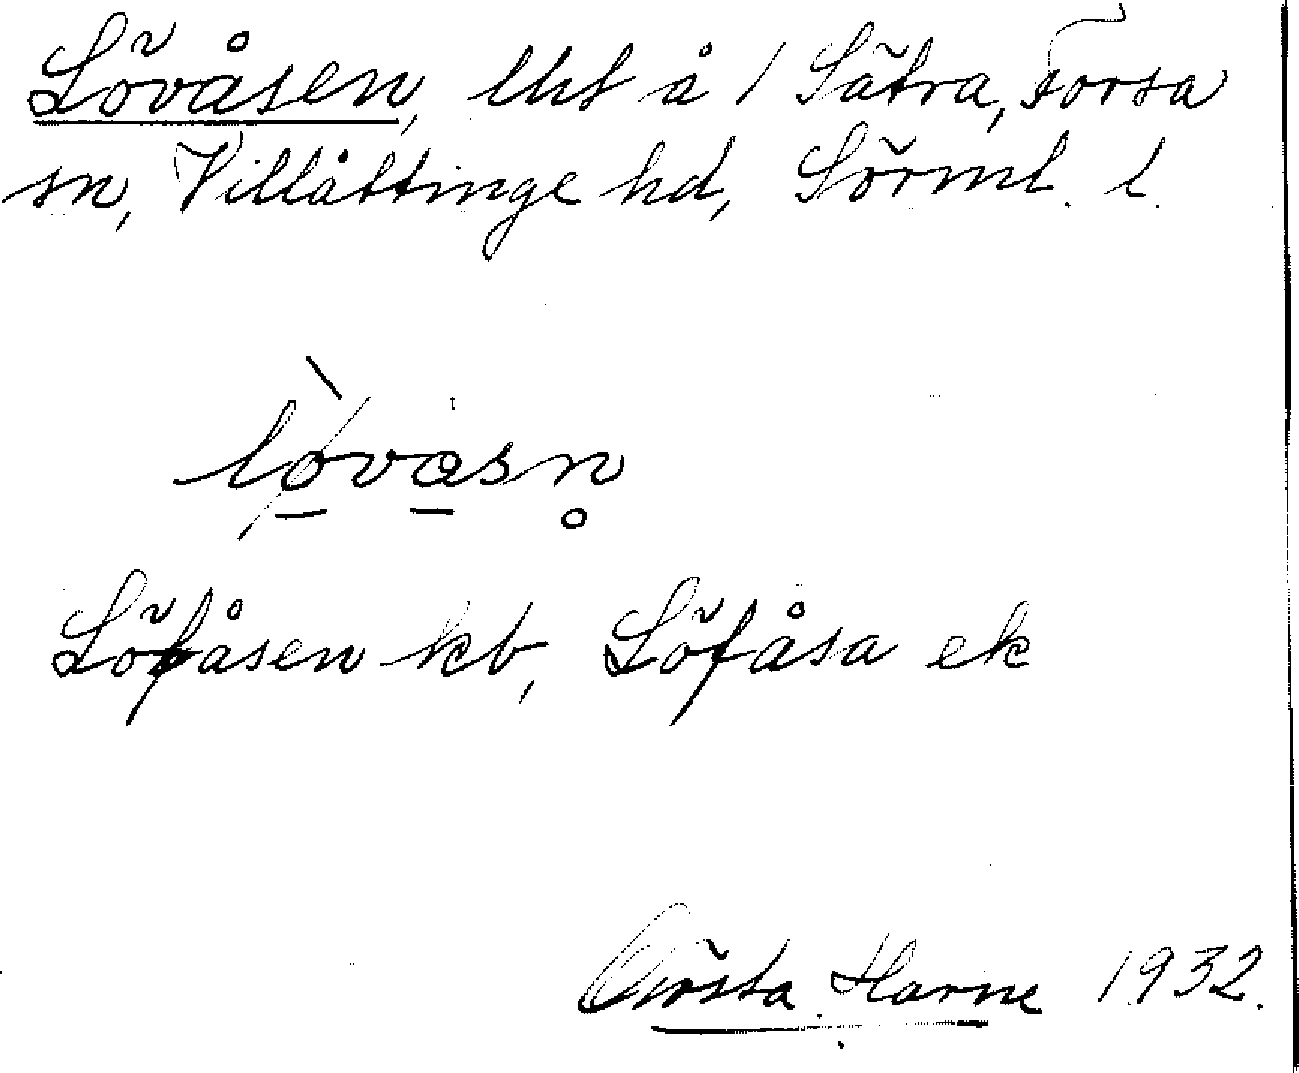 Lövåsen, lht å 1 Sätra, Forsa
sn, Villåttinge hd, Sörml. l.
lø̀våsn̥
Löfåsen kb, Löfåsa ek
Gösta Harne 1932.